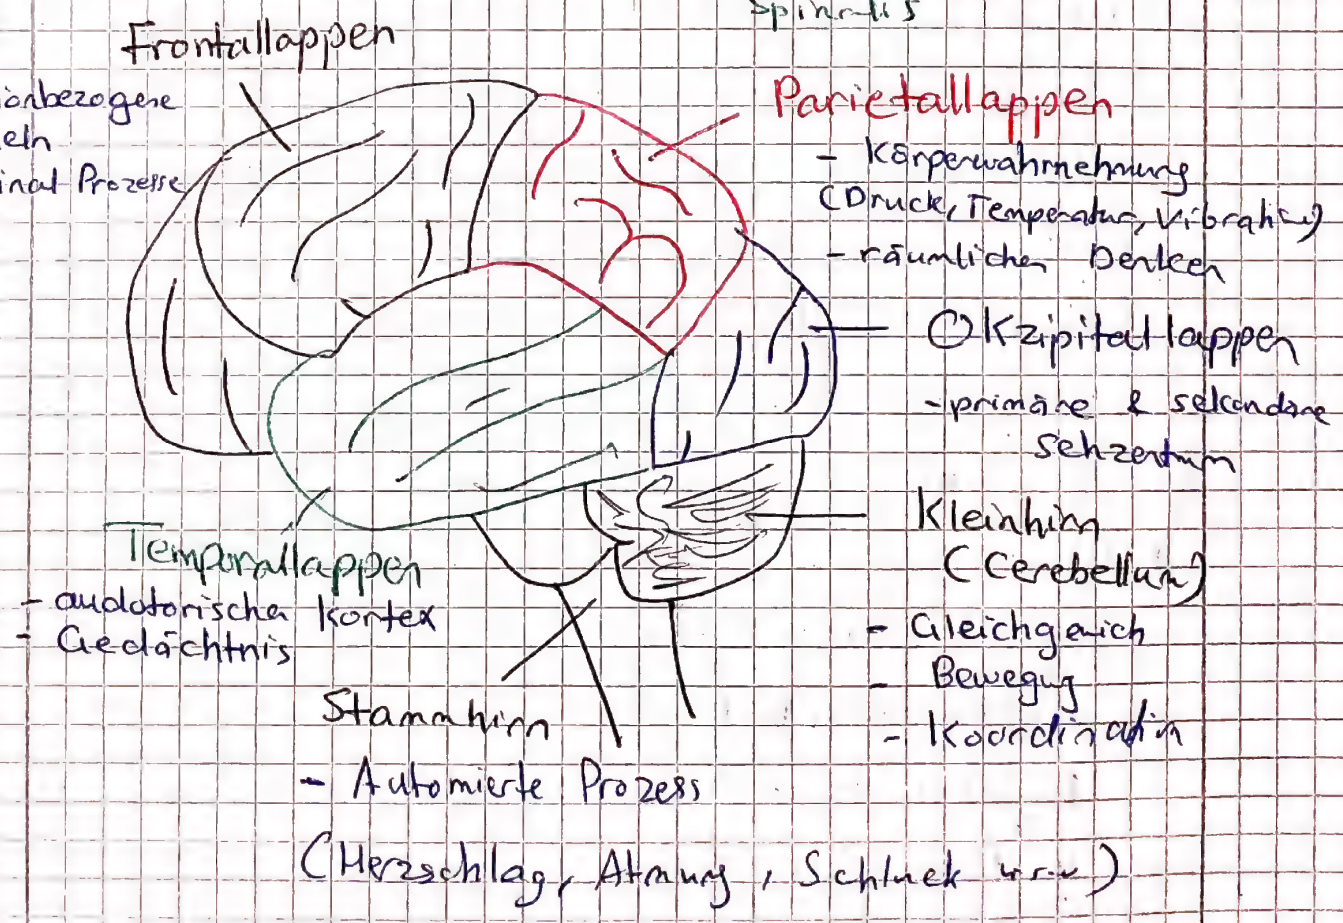 spinalis
Frontallappen
ionbezogene
eln
inal Prozesse
Parietallappen
- Körperwahrnehmung
(Druck, Temperatur, Vibration)
- räumlicher Denken
Okzipitallappen
- primäre & sekundäre
sehzentrum
Kleinhirn
(Cerebellum)
- Gleichgewich
- Bewegug
- Koordination
Temporallappen
- audotorischer Kortex
- Gedächtnis
Stammhirn
- Automierte Prozess
(Herzschlag, Atmung, Schluck u.s.w)